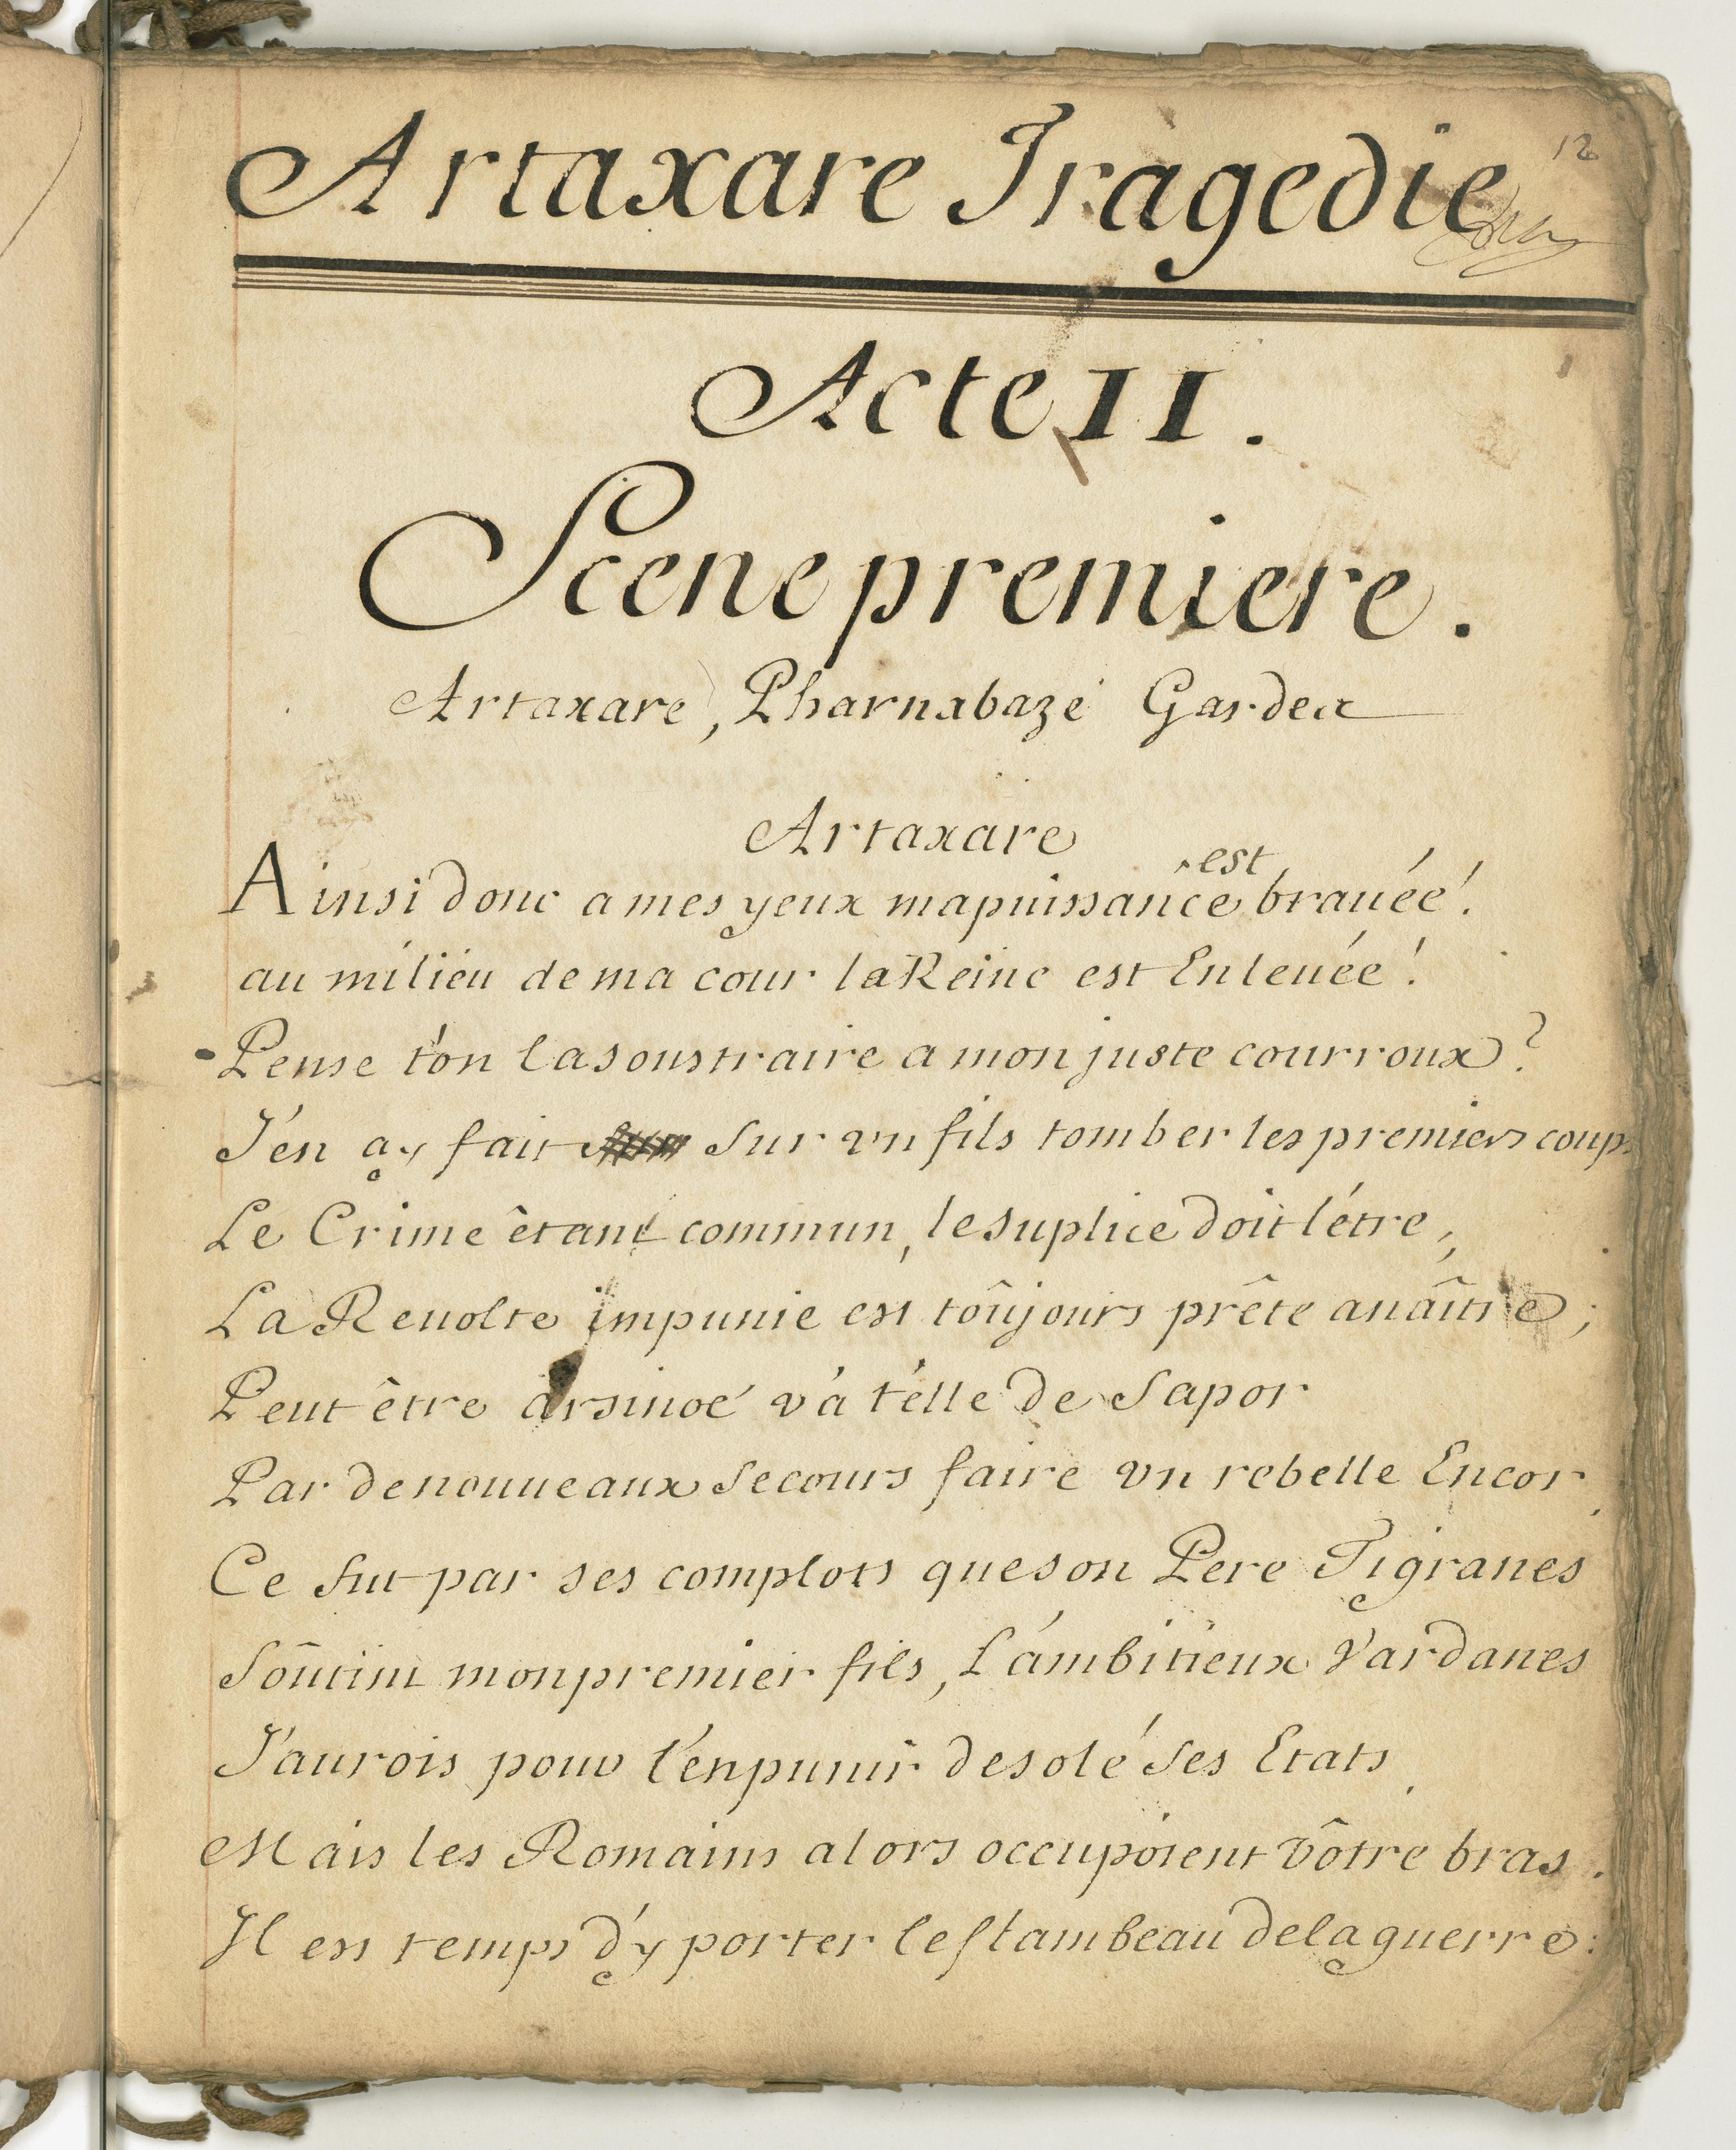 12
Artaxare Tragedie
Acte II.
Scene premiere.
Artaxare, Pharnabaze Gardes
Artaxare
est
Ainsi donc a mes yeux ma puissance brauée!
au milieu de ma cour la Reine est Enleuée!
Pense t'on la soustraire a mon juste courroux?
J'en ay fait sur vn fils tomber les premiers coup
Le Crime êtant commun, le suplice doit l'étre,
La Reuolte impunie est toûjours prête a naître;
Peut être arsinoé va t'elle de Sapor
Par de nouueaux secours faire vn rebelle Encor,
Ce fut par ses complots que son Pere Tigranes
Soûtint mon premier fils, L'ambitieux Vardanes
J'aurois pour l'en punir desolé ses Etats,
Mais les Romains alors occupoient vôtre bras.
Il est temps d'y porter le flambeau de la guerre: